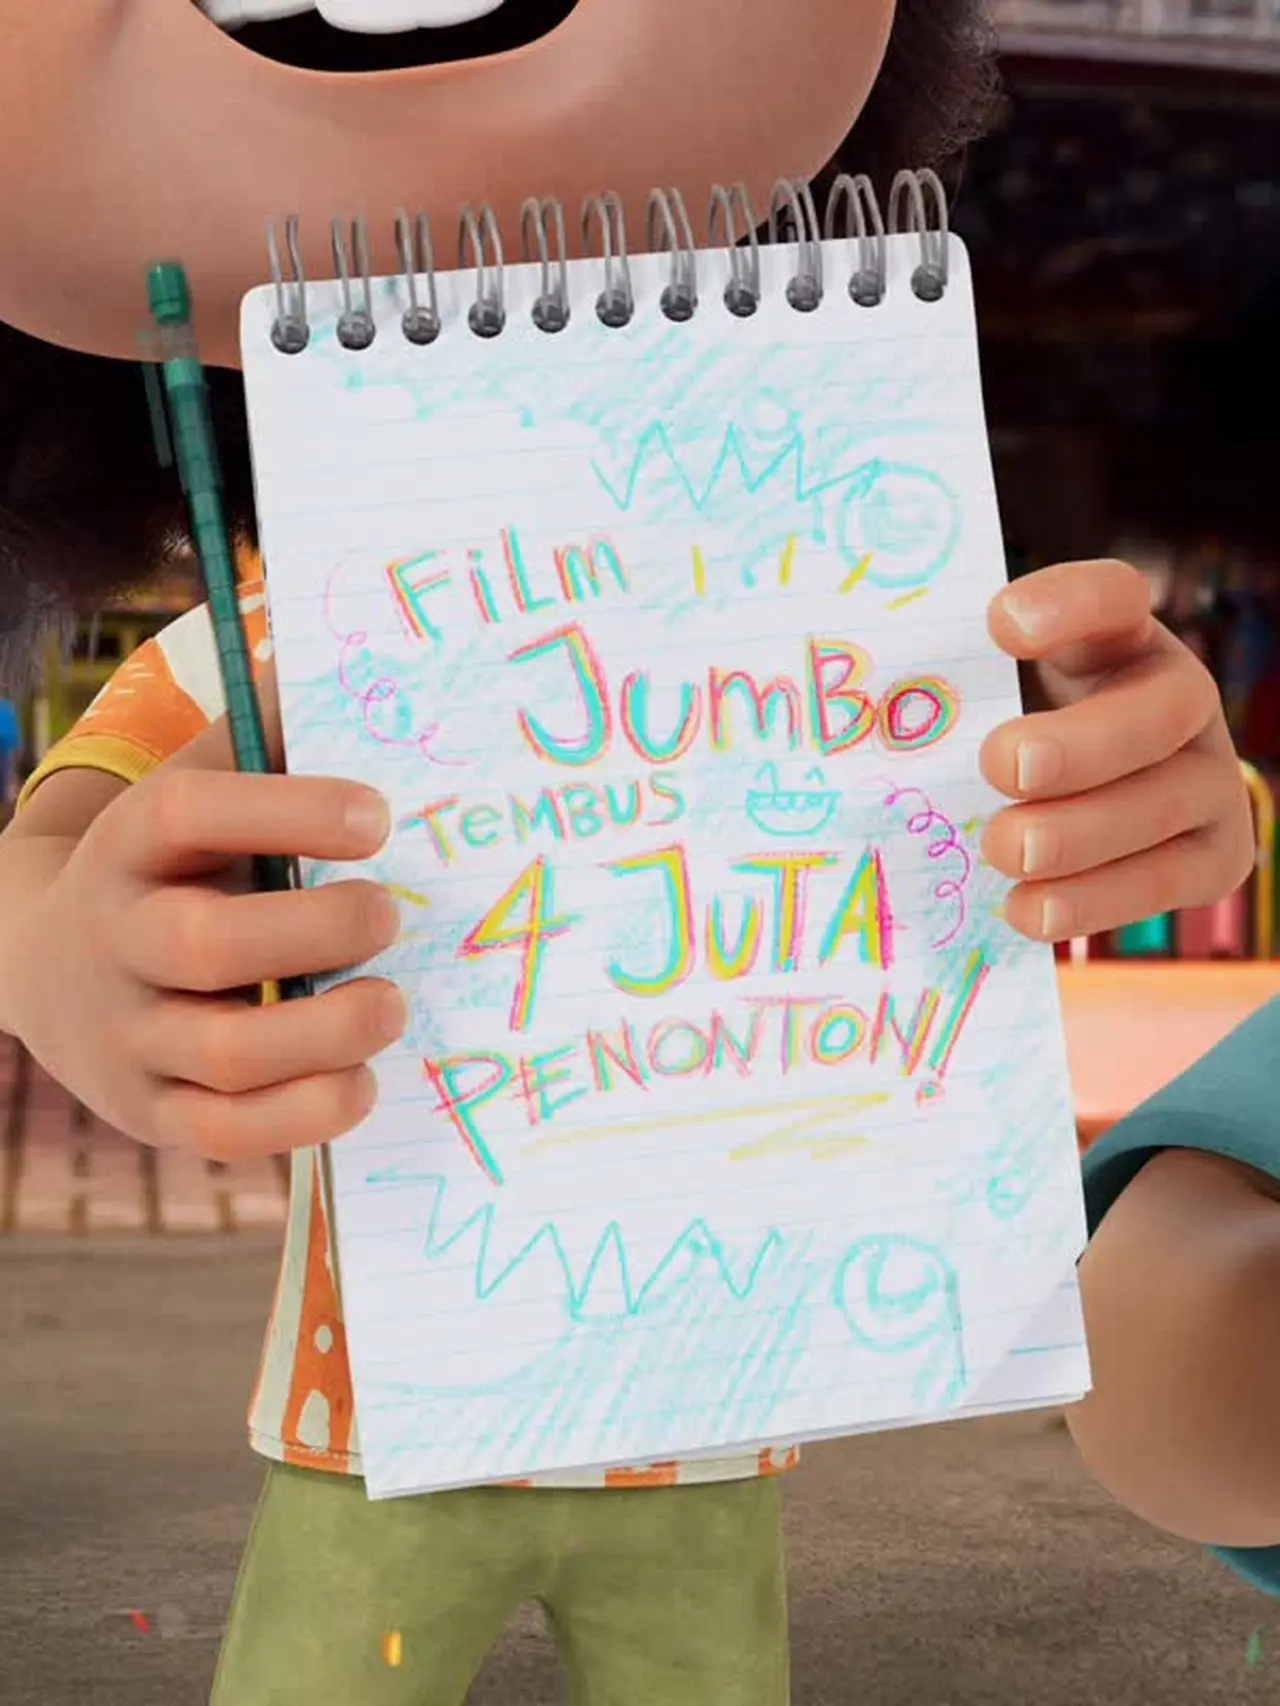 FiLm
JumBo
TeMBUS
4 JuTA
PENONTON!